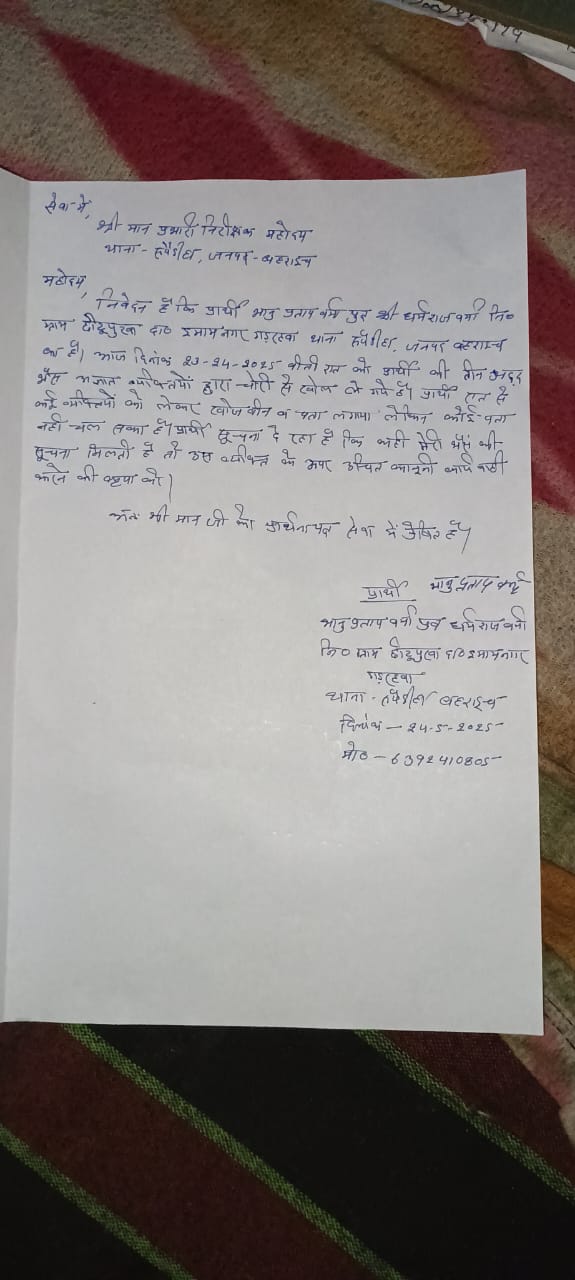 सेवा में,
श्री मान प्रभारी निरीक्षक महोदय
थाना - रुपैडीहा, जनपद - बहराइच
महोदय,
निवेदन है कि प्रार्थी भानु प्रताप वर्मा पुत्र श्री धर्मराज वर्मा नि०
ग्राम दा० इमामनगर गड़रहवा थाना रुपैडीहा, जनपद बहराइच
का है। आज दिनांक 23-24-2025 बीती रात को प्रार्थी की तीन अदद
भैंस अज्ञात व्यक्तियों द्वारा चोरी से खोल ले गये है। प्रार्थी रात से
कई व्यक्तियों को लेकर खोजबीन व पता लगाया लेकिन कोई पता
नहीं चल सका है। प्रार्थी सूचना दे रहा है कि कही मेरी भैंस की
सूचना मिलती है तो उस व्यक्ति के ऊपर उचित कानूनी कार्यवाही
करने की कृपा करे।
अतः श्री मान जी को प्रार्थनापत्र सेवा में प्रेषित है।
प्रार्थी भानु प्रताप वर्मा
भानु प्रताप वर्मा पुत्र धर्मराज वर्मा
नि० ग्राम दा० इमामनगर
गड़रहवा
थाना - रुपैडीहा बहराइच
दिनांक - 24-5-2025
मो० - 6392410805